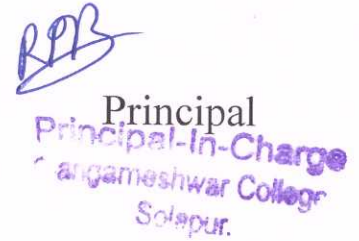 Principal
Principal-In-Charge
angameshwar College
Solapur.